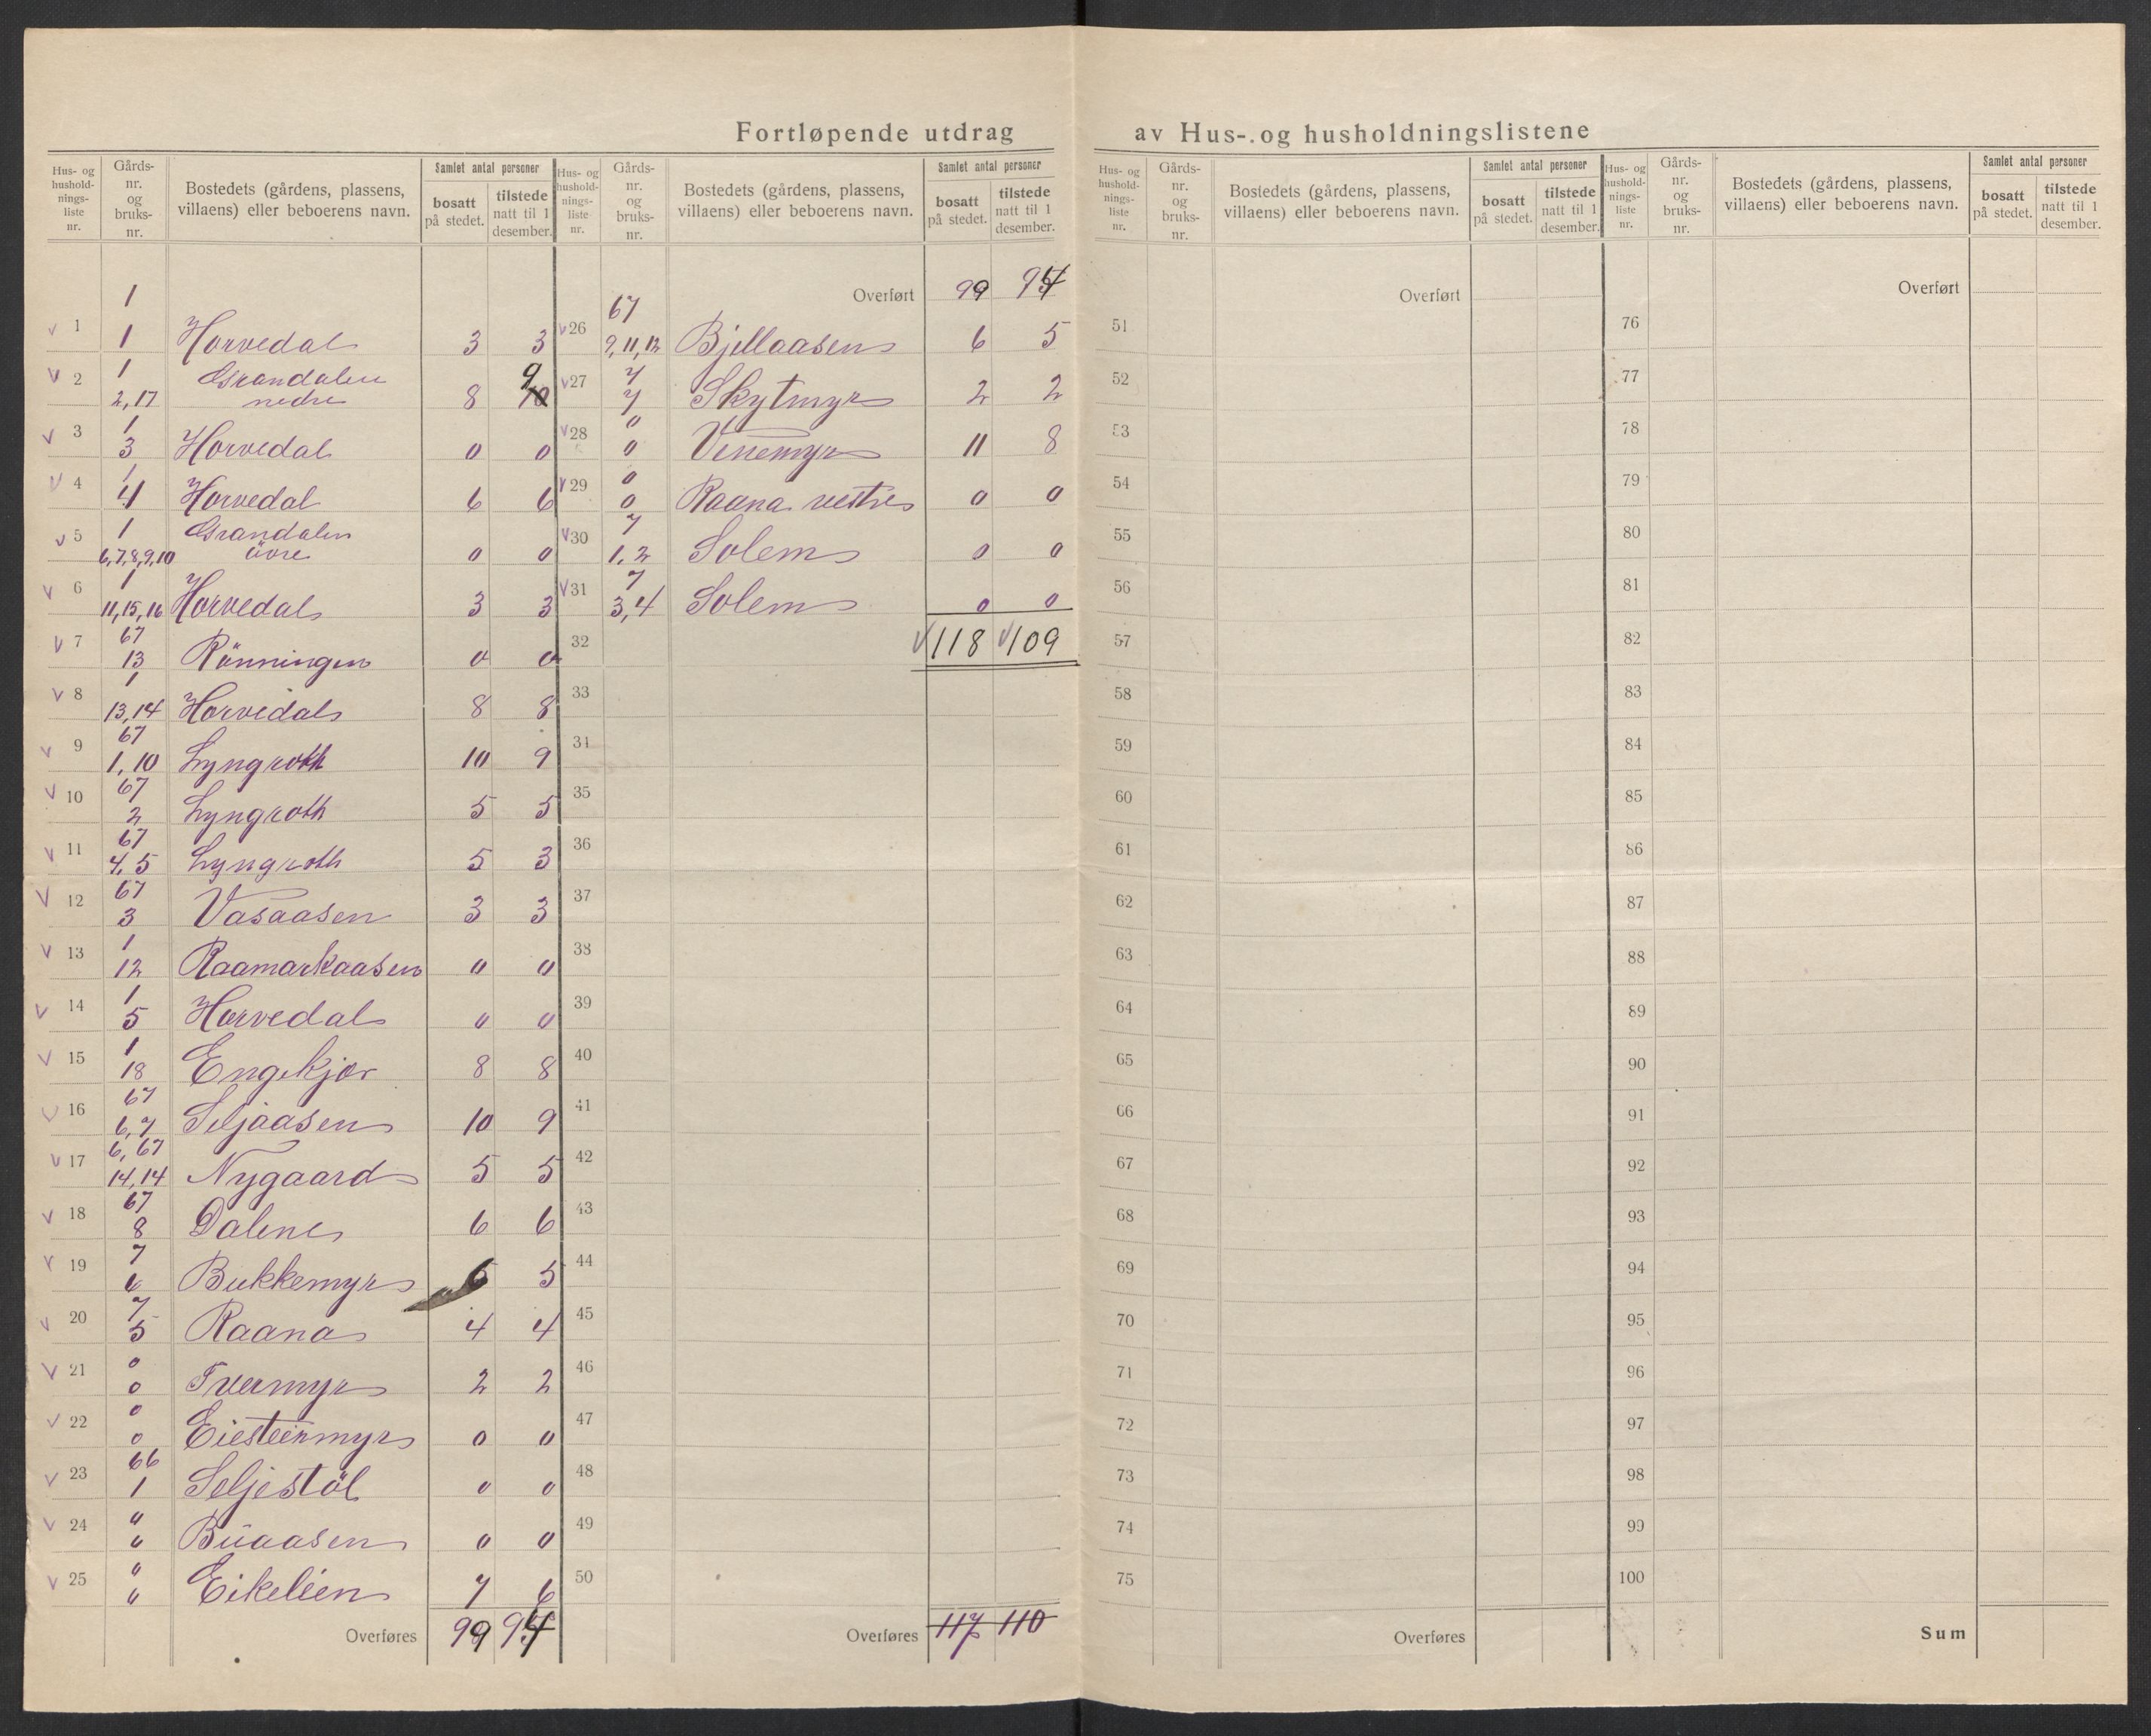 Fortløpende utdrag av Hus- og husholdningslistene
Hus- og hushold-nings-liste nr. Gårds-nr. og bruks-nr. Bostedets (gårdens, plassens, villaens) eller beboerens navn. Samlet antal personer bosatt på stedet. tilstede natt til 1 desember.
1 1 1 Horvedal 3 3
2 1 2,17 Grandalen nedre 8 9
3 1 3 Horvedal 0 0
4 1 4 Horvedal 6 6
5 1 6,7,8,9,10 Grandalen övre 0 0
6 1 11,15,16 Horvedal 3 3
7 67 13 Rönningen 0 0
8 1 13,14 Horvedal 8 8
9 67 1,10 Lyngroth 10 9
10 67 2 Lyngroth 5 5
11 67 4,5 Lyngroth 5 3
12 67 3 Vasaasen 3 3
13 1 12 Raamarkaasen 0 0
14 1 5 Horvedal 0 0
15 1 18 Engekjær 8 8
16 67 6,7 Seljaasen 10 9
17 6,67 14,14 Nygaard 5 5
18 67 8 Dalene 6 6
19 7 6 Bukkemyr 6 5
20 7 5 Raana 4 4
21 0 0 Tvermyr 2 2
22 0 0 Eiesteinmyr 0 0
23 66 1 Seljestöl 0 0
24 " " Buaasen 0 0
25 " " Eikelien 7 6
Overføres 99 94
Hus- og hushold-nings-liste nr. Gårds-nr. og bruks-nr. Bostedets (gårdens, plassens, villaens) eller beboerens navn. Samlet antal personer bosatt på stedet. tilstede natt til 1 desember.
Overført 99 94
26 67 9,11,12 Bjellaasen 6 5
27 7 7 Skytmyr 2 2
28 0 0 Venemyr 11 8
29 0 0 Raana vestre 0 0
30 7 1,2 Solem 0 0
31 7 3,4 Solem 0 0
32 118 109
33
34
35
36
37
38
39
40
41
42
43
44
45
46
47
48
49
50
Overføres 117 110
Hus- og hushold-nings-liste nr. Gårds-nr. og bruks-nr. Bostedets (gårdens, plassens, villaens) eller beboerens navn. Samlet antal personer bosatt på stedet. tilstede natt til 1 desember.
Overført
51
52
53
54
55
56
57
58
59
60
61
62
63
64
65
66
67
68
69
70
71
72
73
74
75
Overføres
Hus- og hushold-nings-liste nr. Gårds-nr. og bruks-nr. Bostedets (gårdens, plassens, villaens) eller beboerens navn. Samlet antal personer bosatt på stedet. tilstede natt til 1 desember.
Overført
76
77
78
79
80
81
82
83
84
85
86
87
88
89
90
91
92
93
94
95
96
97
98
99
100
Sum